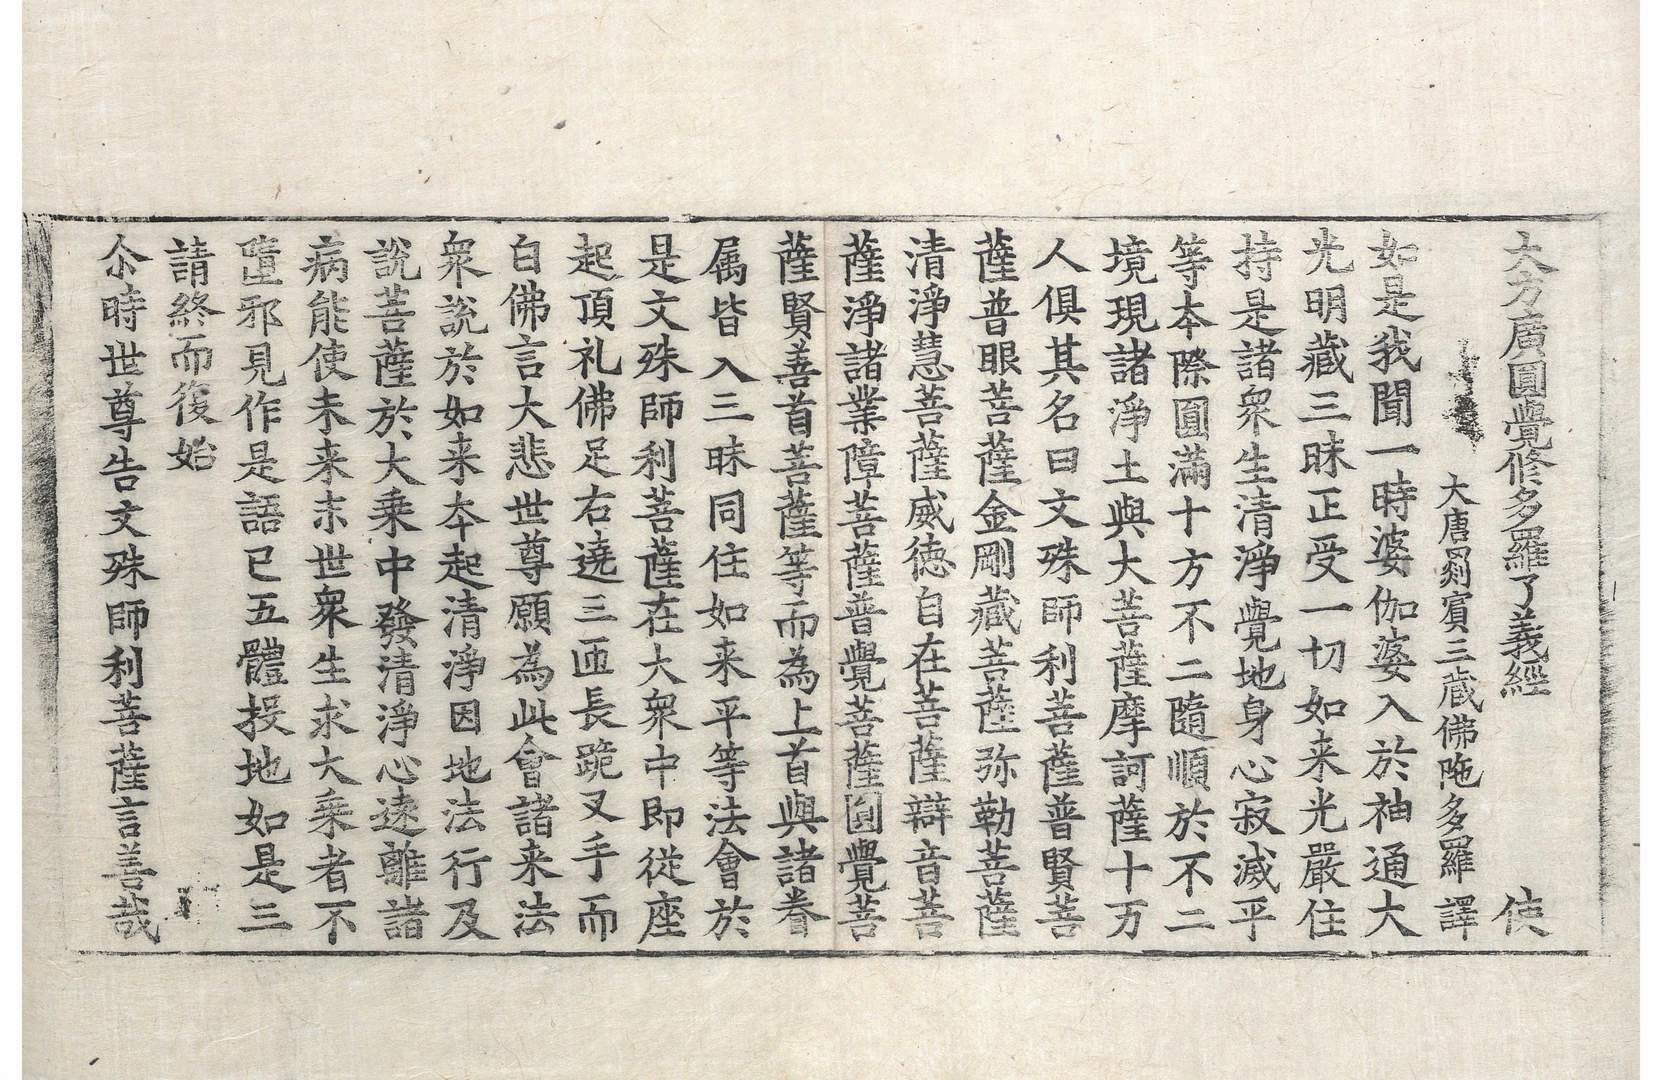 大方廣圓覺修多羅了義經 使
大唐罽賓三藏佛陁多羅 譯
如是我聞一時婆伽婆入於神通大
光明藏三昧正受一切如来光嚴住
持是諸衆生清淨覺地身心寂滅平
等本際圓滿十方不二隨順於不二
境現諸淨土與大菩薩摩訶薩十万
人俱其名曰文殊師利菩薩普賢菩
薩普眼菩薩金剛藏菩薩弥勒菩薩
清淨慧菩薩威德自在菩薩辯音菩
薩淨諸業障菩薩普覺菩薩圓覺菩
薩賢善首菩薩等而為上首與諸眷
属皆入三昧同住如来平等法會於
是文殊師利菩薩在大衆中即從座
起頂礼佛足右遶三匝長跪叉手而
白佛言大悲世尊願為此會諸来法
衆說於如来本起清淨因地法行及
說菩薩於大乘中發清淨心遠離諸
病能使未来末世衆生求大乘者不
墮邪見作是語已五體投地如是三
請終而復始
尒時世尊告文殊師利菩薩言善哉